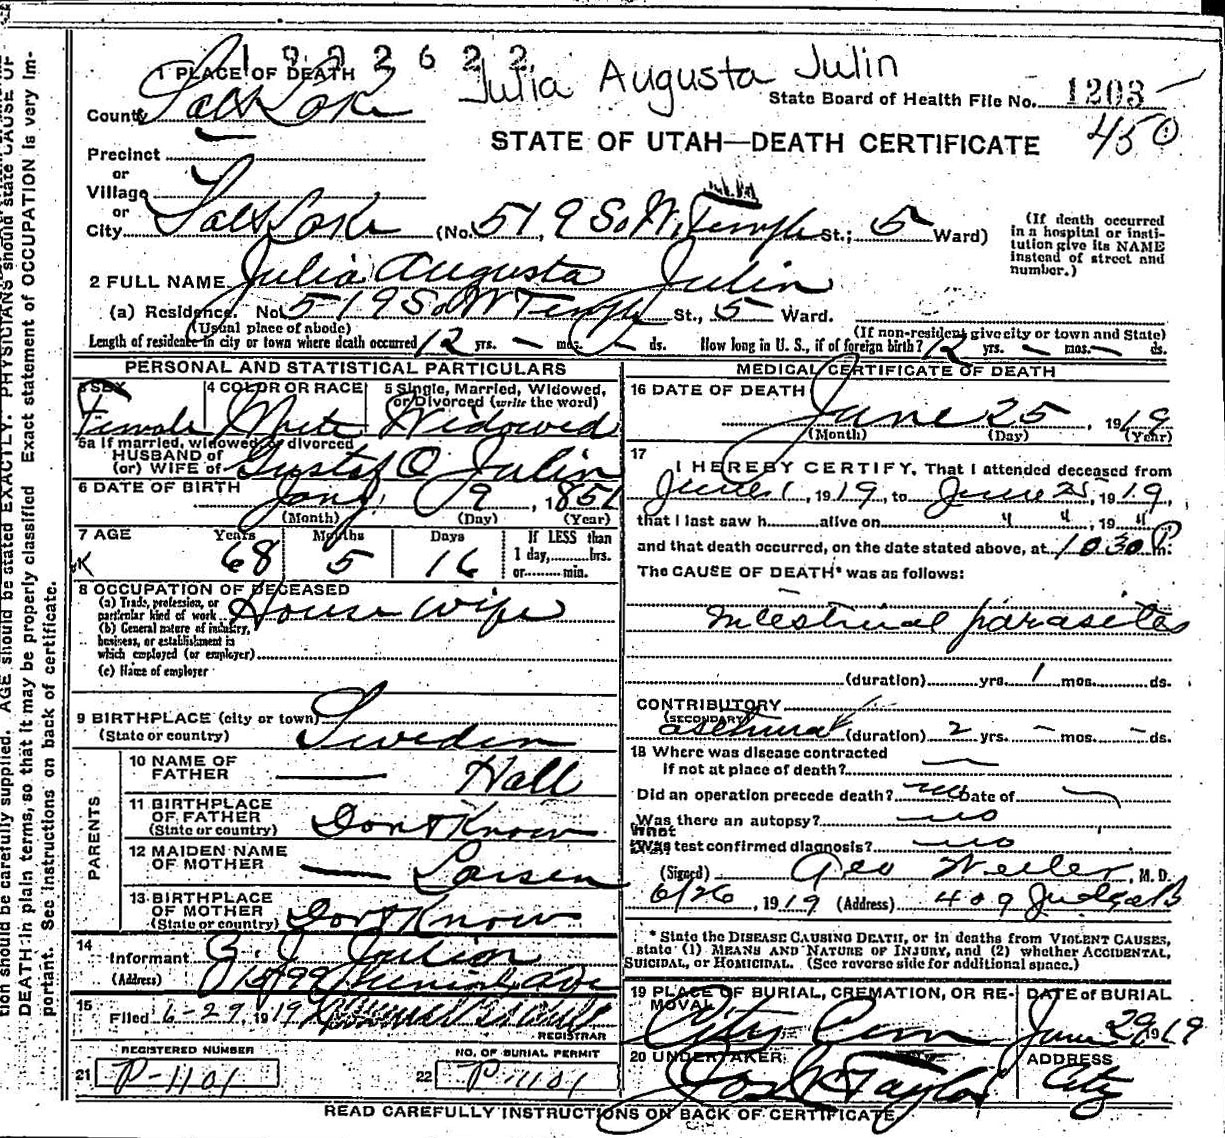 1992622
Julia Augusta Julin
1 PLACE OF DEATH
State Board of Health File No. 1203
County Salt Lake
450
STATE OF UTAH—DEATH CERTIFICATE
Precinct
or
Village
or
City Salt Lake (No. 519 So W. Temple St.; 5 Ward)
(If death occurred in a hospital or institution give its NAME instead of street and number.)
2 FULL NAME Julia Augusta Julin
(a) Residence. No. 519 So W Temple St., 5 Ward.
(Usual place of abode)
(If non-resident give city or town and State)
Length of residence in city or town where death occurred 12 yrs. — mos. — ds.
How long in U. S., if of foreign birth? 12 yrs. — mos. — ds.
PERSONAL AND STATISTICAL PARTICULARS
3 SEX Female
4 COLOR OR RACE White
5 Single, Married, Widowed, or Divorced (write the word) Widowed
5a If married, widowed or divorced
HUSBAND of
(or) WIFE of Gustaf O Julin
6 DATE OF BIRTH Jany 9, 1851
(Month) (Day) (Year)
7 AGE Years 68 Months 5 Days 16
If LESS than
1 day, hrs.
or min.
K
8 OCCUPATION OF DECEASED
(a) Trade, profession, or
particular kind of work House wife
(b) General nature of industry,
business, or establishment in
which employed (or employer)
(c) Name of employer
9 BIRTHPLACE (city or town)
(State or country) Sweden
PARENTS
10 NAME OF
FATHER — Hall
11 BIRTHPLACE
OF FATHER
(State or country) Dont Know
12 MAIDEN NAME
OF MOTHER — Larsen
13 BIRTHPLACE
OF MOTHER
(State or country) Dont Know
14
Informant G. J. Julian
(Address)
15
Filed 6-29, 1919
REGISTRAR
REGISTERED NUMBER
21 P-1101
NO. OF BURIAL PERMIT
22 P-1101
MEDICAL CERTIFICATE OF DEATH
16 DATE OF DEATH
June 25, 1919
(Month) (Day) (Year)
17
I HEREBY CERTIFY, That I attended deceased from
June 1, 1919, to June 25, 1919,
that I last saw h alive on " ", 19 "
and that death occurred, on the date stated above, at 1030 P m.
The CAUSE OF DEATH* was as follows:
Intestinal parasites
(duration) yrs. 1 mos. ds.
CONTRIBUTORY
(SECONDARY)
asthma (duration) 2 yrs. — mos. — ds.
18 Where was disease contracted
if not at place of death? —
Did an operation precede death? no Date of —
Was there an autopsy? no
What
Was test confirmed diagnosis? no
(Signed) Geo Weiler, M. D.
6/26, 1919 (Address) 409 Judge B
* State the DISEASE CAUSING DEATH, or in deaths from VIOLENT CAUSES,
state (1) MEANS AND NATURE OF INJURY, and (2) whether ACCIDENTAL,
SUICIDAL, or HOMICIDAL. (See reverse side for additional space.)
19 PLACE OF BURIAL, CREMATION, OR REMOVAL
City Cem
DATE of BURIAL
June 29 1919
20 UNDERTAKER
Jos Wm Taylor
ADDRESS
City
READ CAREFULLY INSTRUCTIONS ON BACK OF CERTIFICATE.
tion should be carefully supplied. AGE should be stated EXACTLY. PHYSICIANS should state CAUSE OF
DEATH in plain terms, so that it may be properly classified. Exact statement of OCCUPATION is very Im-
portant. See instructions on back of certificate.